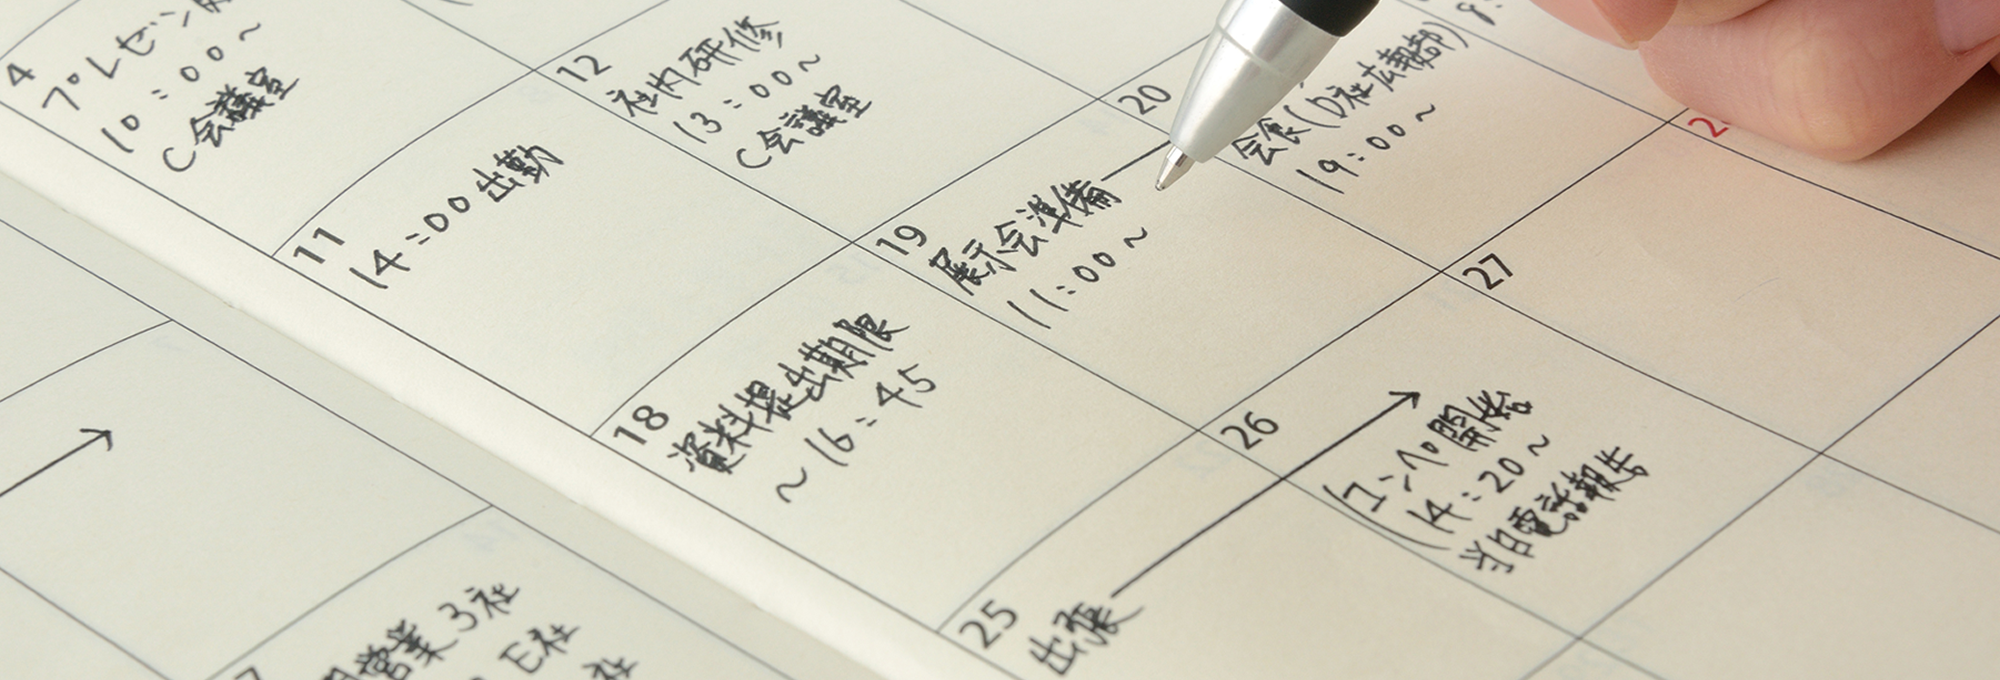 4
プレゼン
10:00～
C会議室
11
14:00出勤
12
社内研修
13:00～
C会議室
18
資料提出期限
～16:45
19
展示会準備
11:00～
20
会食(D社広報部)
19:00～
25
出張
26
コンペ開始
14:20～
当日電話報告
27
営業3社
E社
社